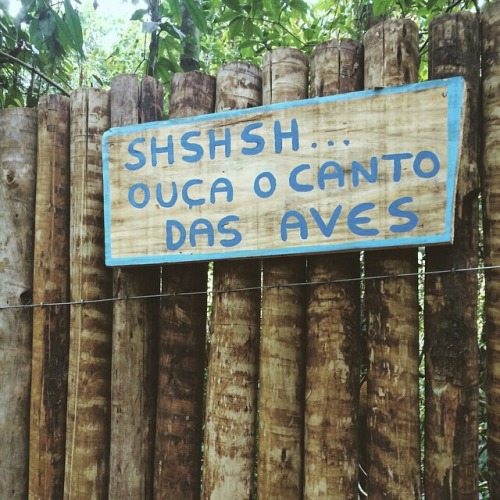 SHSHSH...
OUÇA O CANTO
DAS AVES